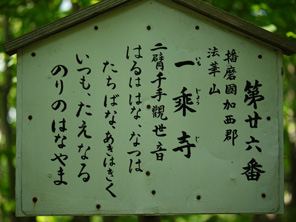 第廿六番
播磨國加西郡
法華山
一乘寺
いちじょうじ
二臂千手觀世音
はるははな なつは
たちばな あきはきく
いつも たえなる
のりのはなやま